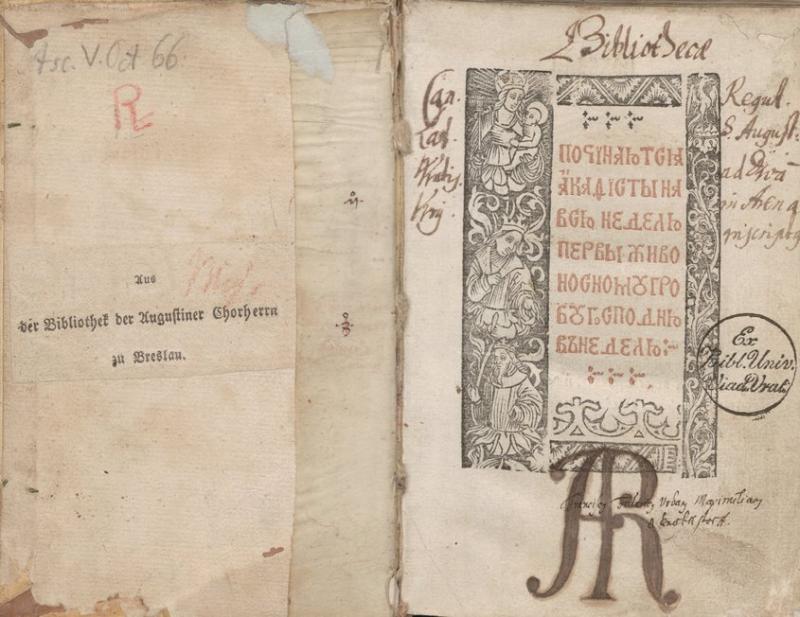 V. Oct 66.
R
Aus
der Bibliothek der Augustiner Chorherrn
zu Breslau.
Bibliothecæ
Can.
Regul.
S. August:
ad Divā
in Arena
ПОЧІНАЮТСІА
АКАѲІСТЫ НА
ВСЮ НЕДЕЛЮ
ПЕРВЫ ЖИВО
НОСНОМУ ГРО
БУ ГОСПОДНЮ
ВЪ НЕДЕЛЮ:~
Ex
Bibl. Univ.
Viad. Vrat.
AR
Urban Maximilian